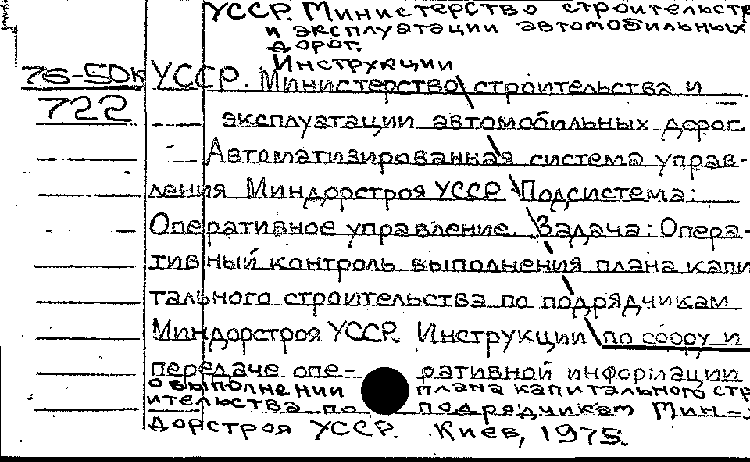 УССР. Министерство строительств
и эксплуатации автомобильных
дорог.
Инструкции
76-50к УССР. Министерство строительства и
722 эксплуатации автомобильных дорог.
Автоматизированная система управ-
ления Миндорстроя УССР. Подсистема:
Оперативное управление. Задача: Опера-
тивный контроль выполнения плана капи
тального строительства по подрядчикам
Миндорстроя УССР. Инструкции по сбору и
передаче опе- ративной информации
о выполнении плана капитального стр
ительства по подрядчикам Мин-
дорстроя УССР. Киев, 1975.